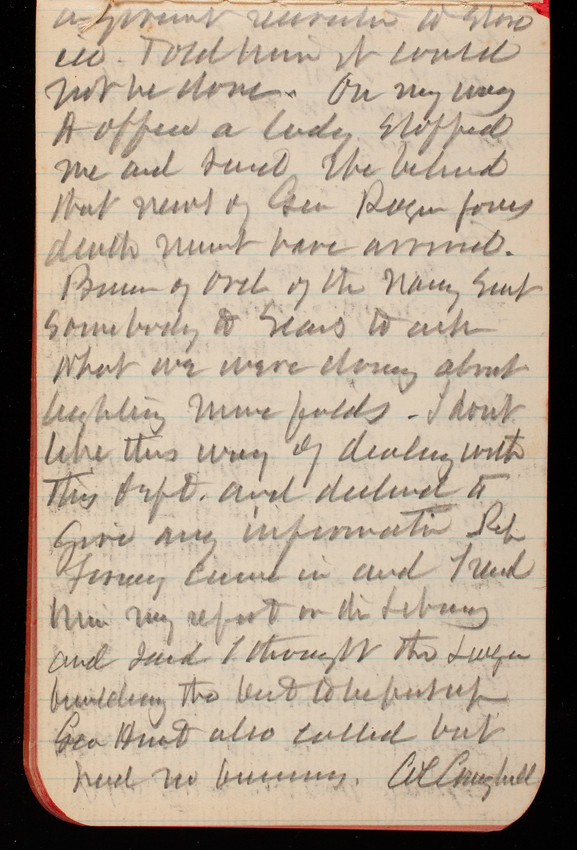 etc. Told him it could
not be done. On my way
to office a lady stopped
me and said she believed
that news of Geo
death must have arrived.
Bureau of Ord of the Navy sent
somebody to Sears to ask
what we were doing about
lighting mine fields. I dont
like this way of dealing with
this Dept. and declined to
give any information Rep
came in and I read
him my report on the Library
and said I thought the larger
building the best to be put up
Gen Hunt also called but
had no business.